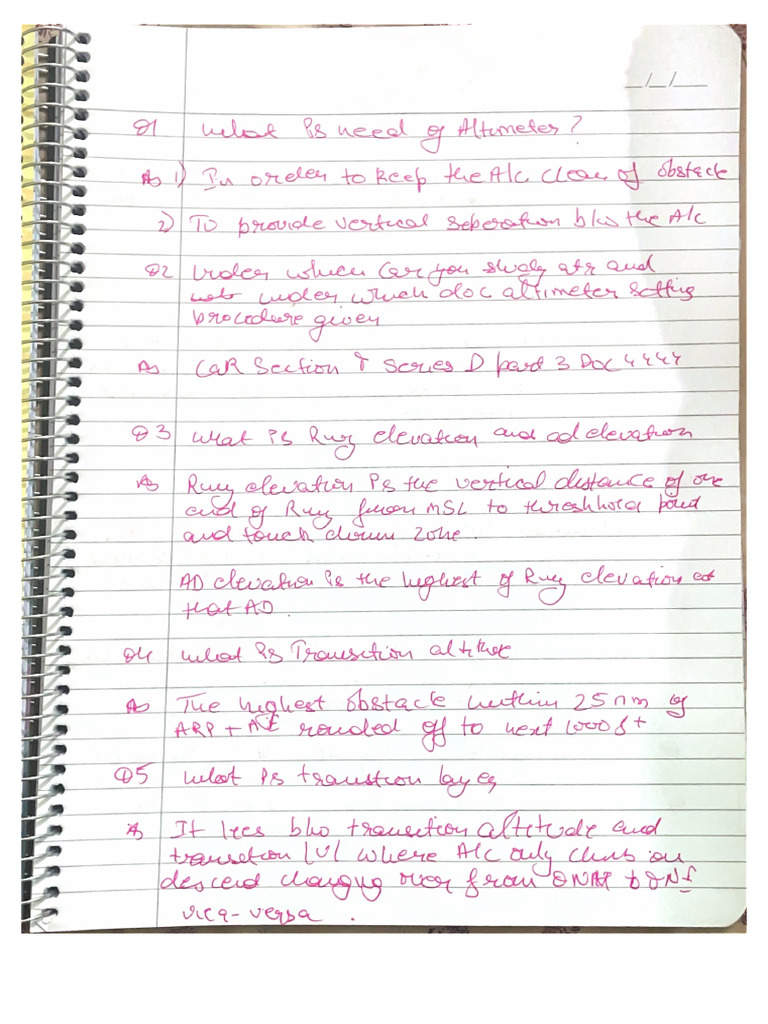 _/_/__
Q1 What is need of Altimeter?
As 1) In order to keep the A/c clear of obstacle
2) To provide vertical seperation b/w the A/c
Q2 Under which Car you study atr and
under which doc altimeter setting
procedure given
As CAR Section Series D part 3 Doc 4444
Q3 what is Rwy elevation and ad elevation
As Rwy elevation is the vertical distance of one
end of Rwy from MSL to threshhold point
and touch down zone.
AD elevation is the highest of Rwy elevation at
that AD.
Q4 What is Transition altitude
As The highest obstacle within 25 nm of
ARP + rounded off to next 1000 ft
Q5 What is transtion layer
As It lies b/w transition altitude and
transition lvl where A/c only climb or
descend changing over from QNH to QNE
vica-versa .